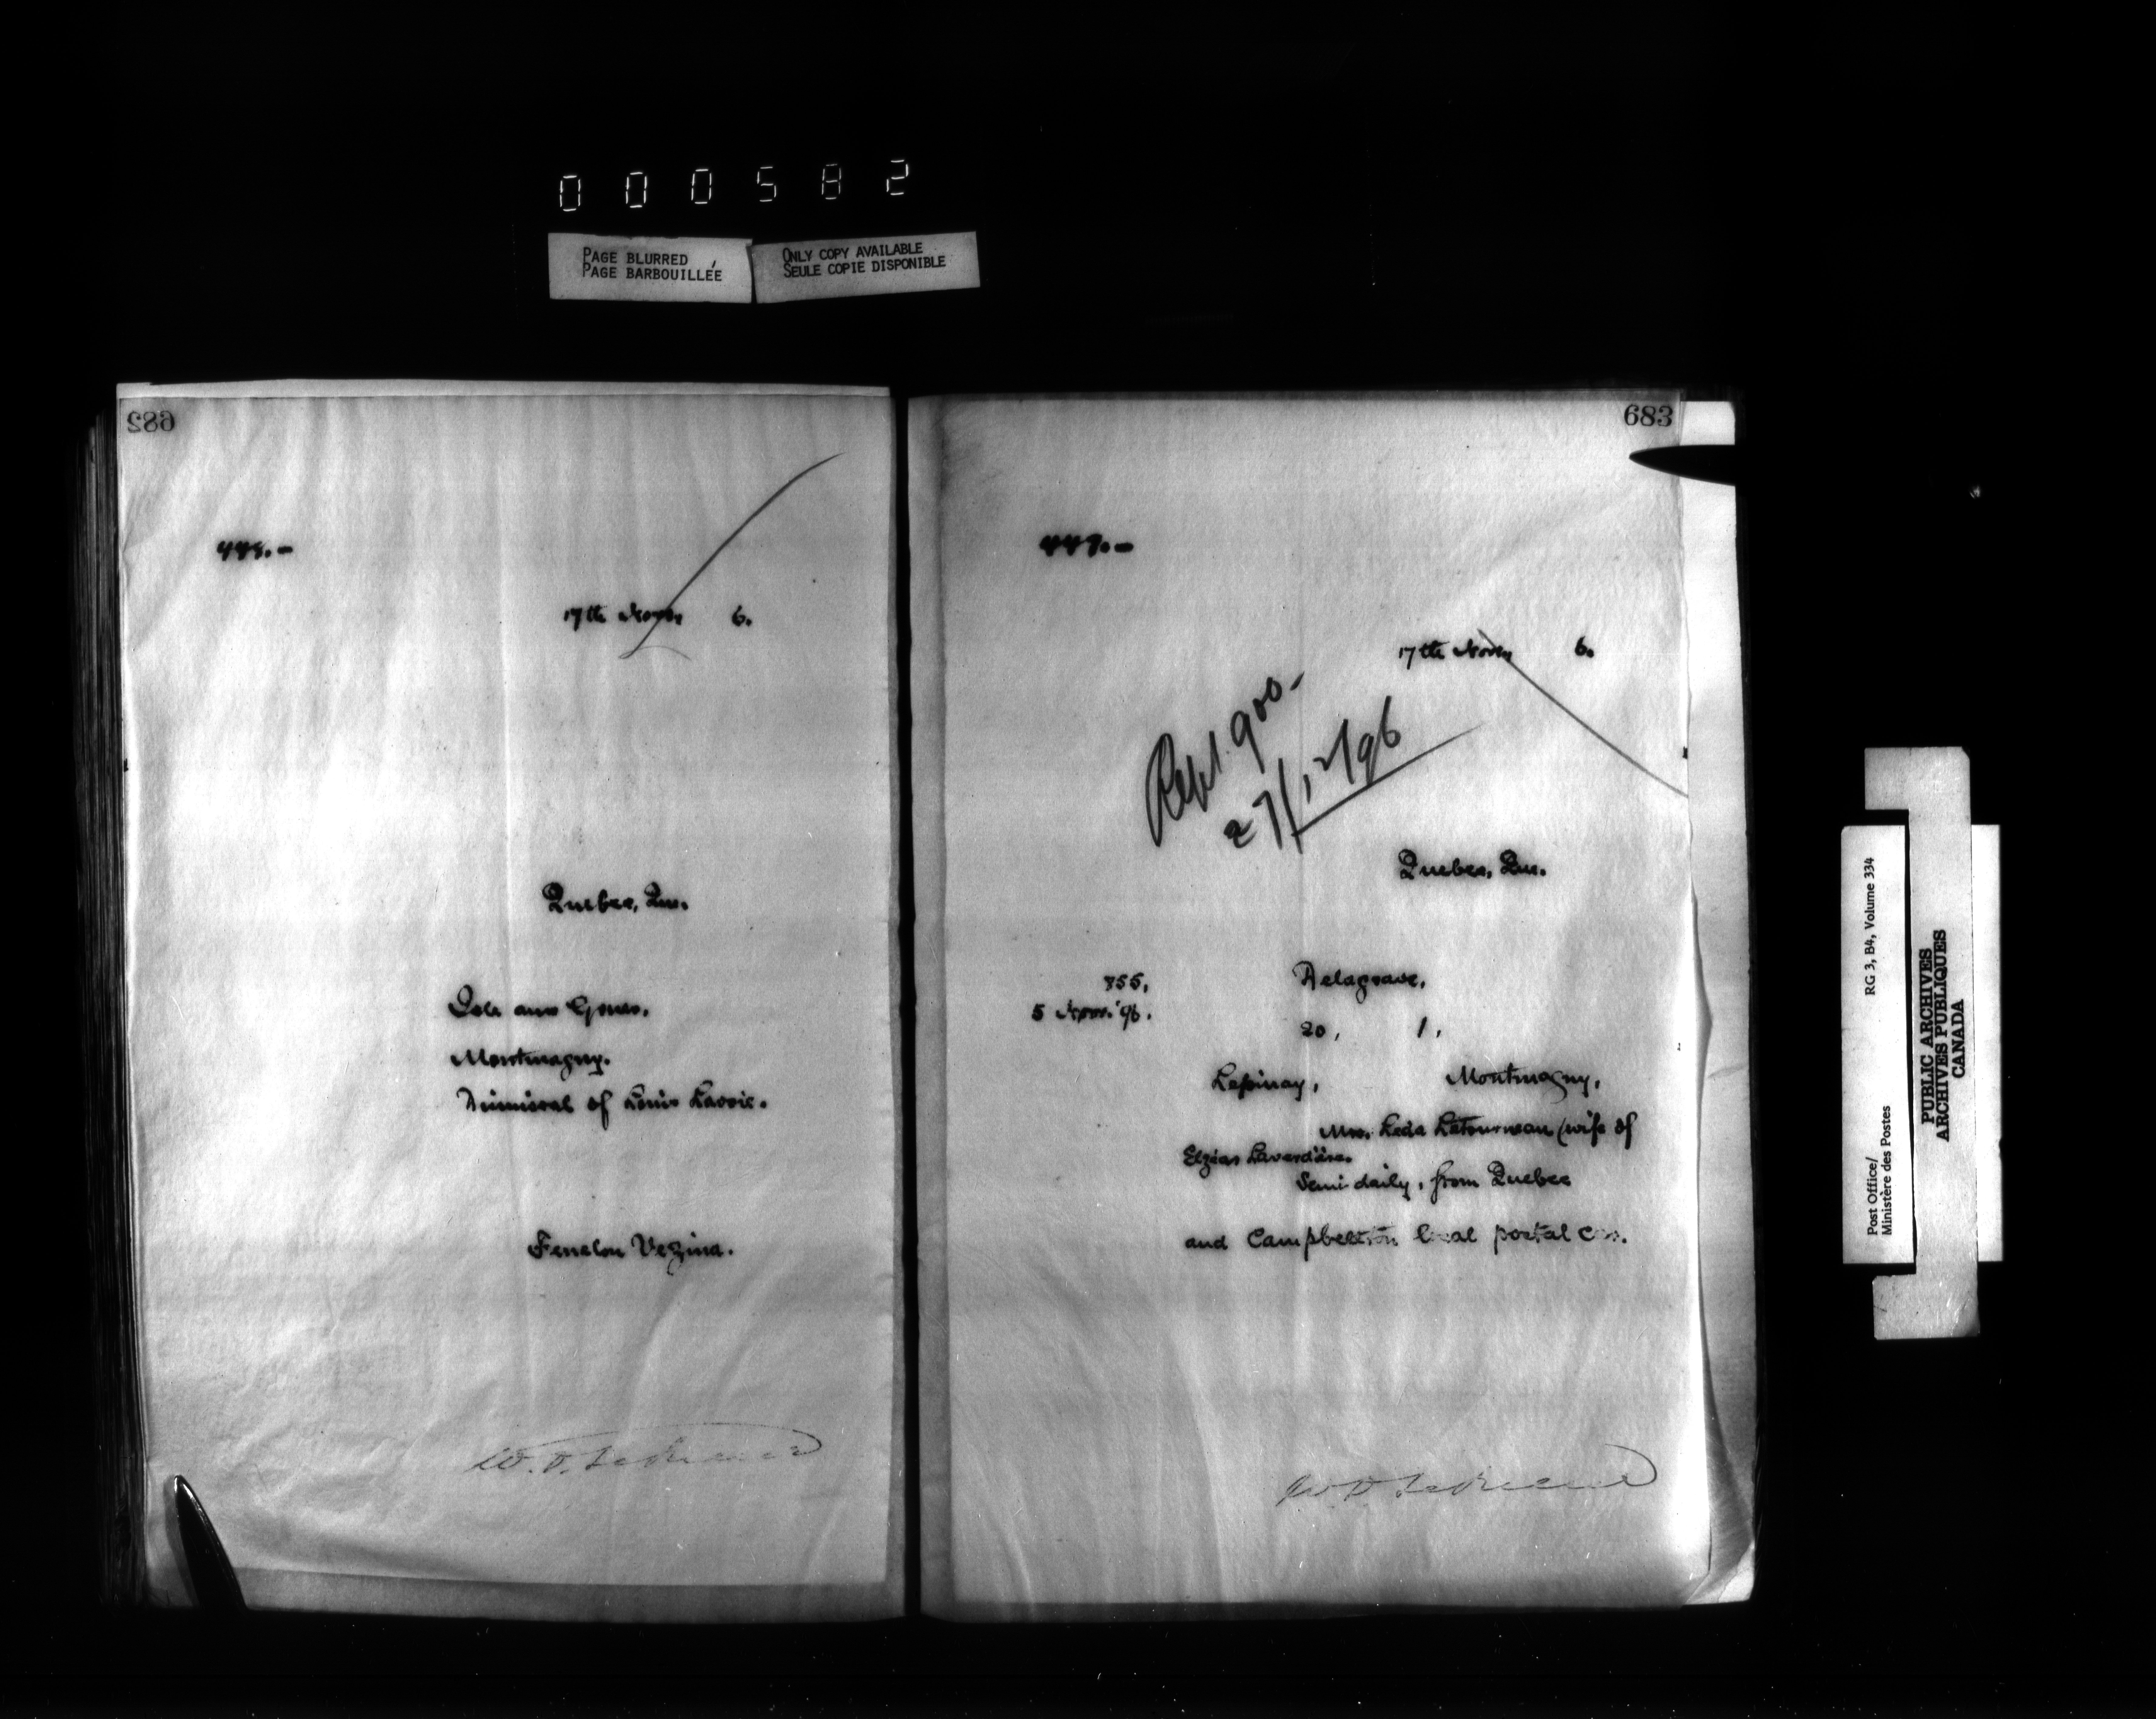 000582
PAGE BLURRED
PAGE BARBOUILLÉE
ONLY COPY AVAILABLE
SEULE COPIE DISPONIBLE
682
448.-
17th Novr. 6.
Quebec, Que.
Montmagny.
Dismissal of Louis Lavoie.
Fenelon Vezina.
683
449.-
17th Novr. 6.
900-
27/12/96
Quebec, Que.
855,
5 Novr. '96.
Delagrave,
20, 1,
Lespinay, Montmagny,
Mrs. Leda Letourneau (wife of
Elzéar Laverdière.
Semi daily, from Quebec
and Campbellton local postal car.
Post Office/
Ministère des Postes
RG 3, B4, Volume 334
PUBLIC ARCHIVES
ARCHIVES PUBLIQUES
CANADA